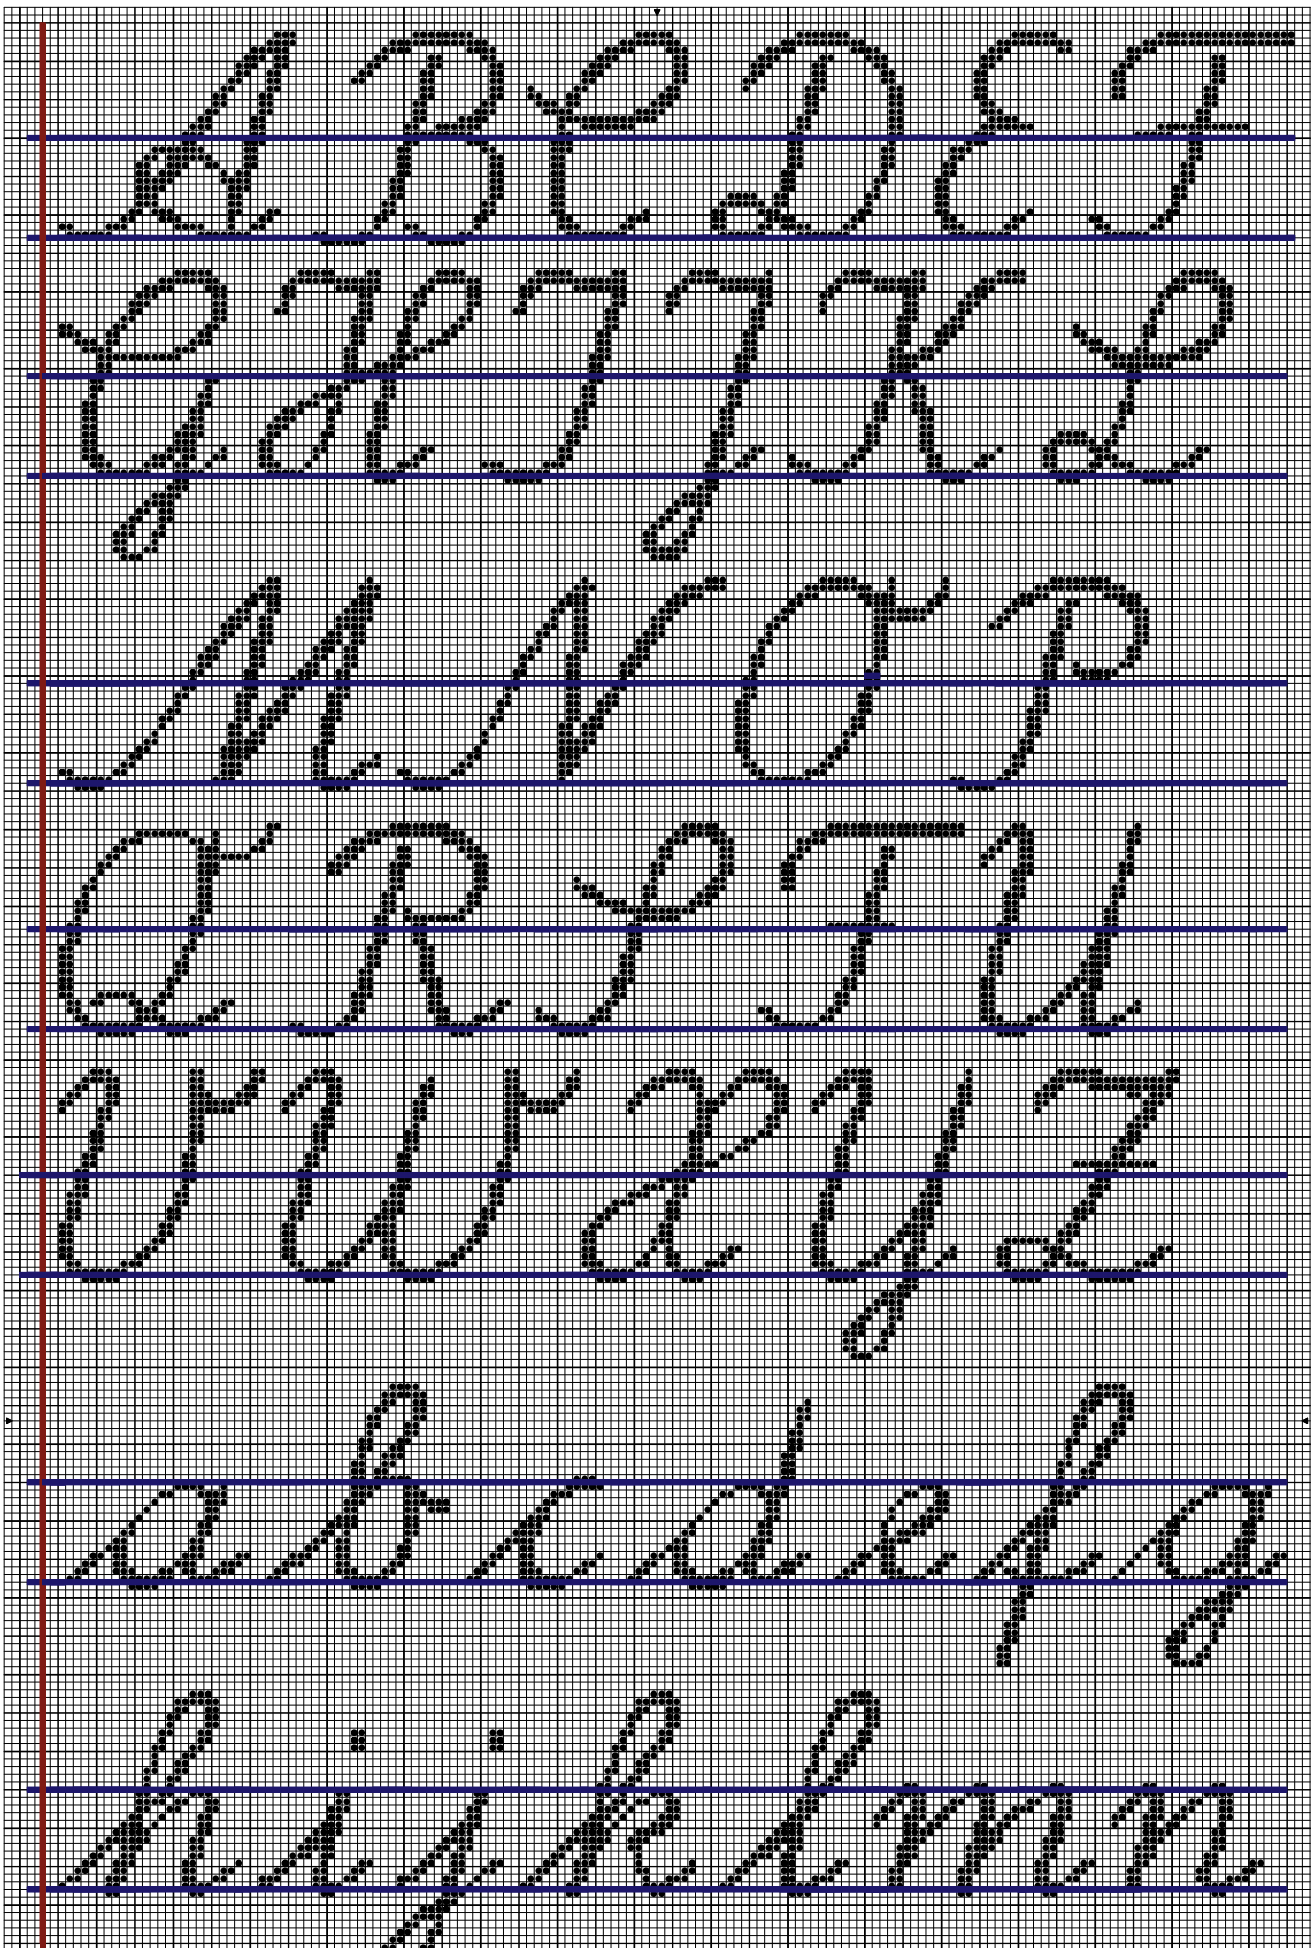 A B C D E F
G H I J K L
M N O P
Q R S T U
V W X Y Z
a b c d e f g
h i j k l m n